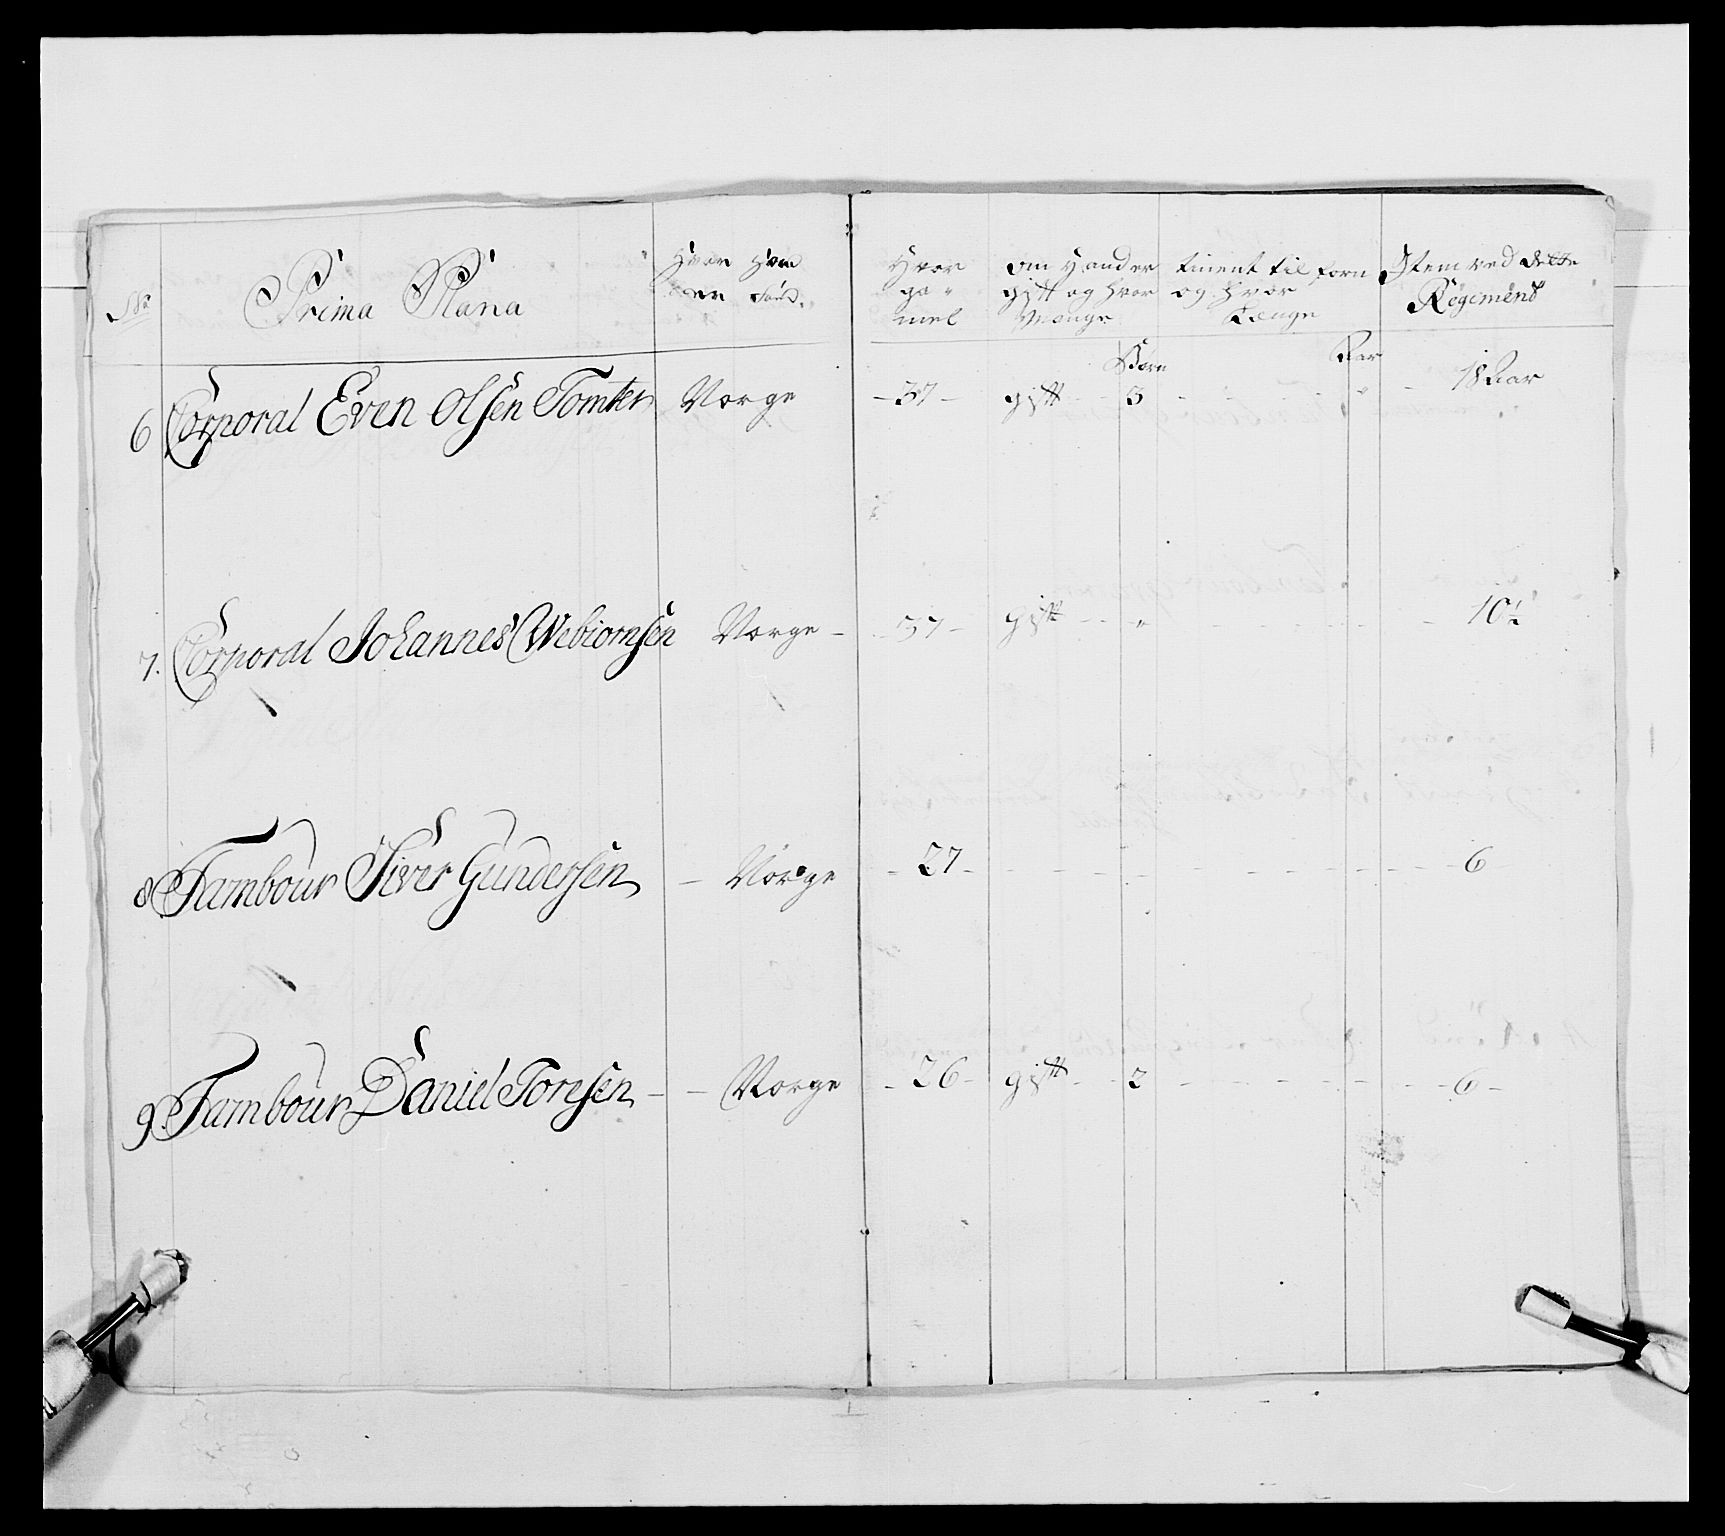 No
Prima Plana
Hvor Hand
er Fød.
Hvor
ga-
mel
om Hand er
gift og hvor
Mange
tient tilforn
og hvor
Længe
Item ved dette
Regiment
Børn
Aar
6 Corporal Even Olsen Tomter Norge - 37 - gift - - 3 - - - " - 18 Aar
7. Corporal Johannes Webiornsen Norge - 37 - gift - - " - - - 10½
8 Tambour Siver Gundersen - Norge - 27 - - - - 6 -
9. Tambour Daniel Toresen - - Norge - 26 - gift - - 2 - - - 6 -